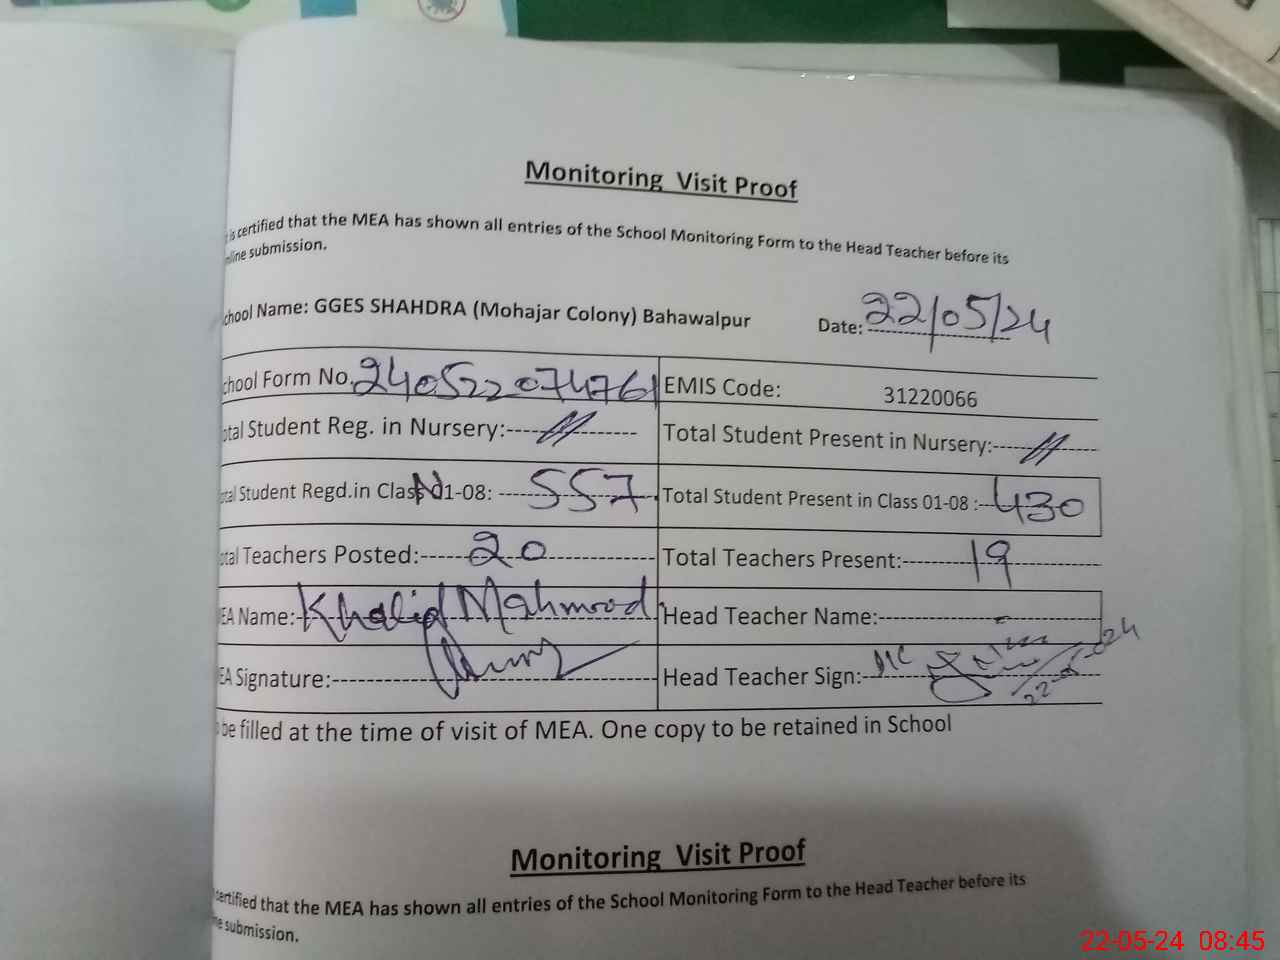 Monitoring Visit Proof
is certified that the MEA has shown all entries of the School Monitoring Form to the Head Teacher before its
nline submission.
chool Name: GGES SHAHDRA (Mohajar Colony) Bahawalpur Date: 22/05/24
chool Form No. 240522074761 EMIS Code: 31220066
otal Student Reg. in Nursery:---- // Total Student Present in Nursery:---- //
otal Student Regd.in Class N 01-08: --- 557 Total Student Present in Class 01-08 :-- 430
otal Teachers Posted:----- 20 Total Teachers Present:----- 19
EA Name: Khalid Mahmood Head Teacher Name:-----
EA Signature:----- Head Teacher Sign:---
22-5-024
be filled at the time of visit of MEA. One copy to be retained in School
Monitoring Visit Proof
certified that the MEA has shown all entries of the School Monitoring Form to the Head Teacher before its
ne submission.
22-05-24 08:45